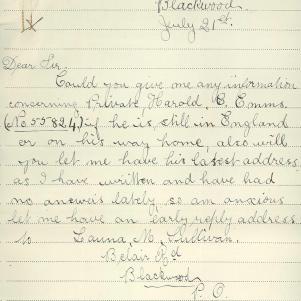 Blackwood.
July 21st.
Dear Sir.
Could you give me any information
concerning Private, Harold, C. Emms.
(No 55824) if he is, still in England
or on his way home, also will
you let me have his latest address
as I have written and have had
no answers lately, so am anxious
let me have an early reply address
to Launa, M, Sullivan.
Belair Rd
Blackwood
P. O.